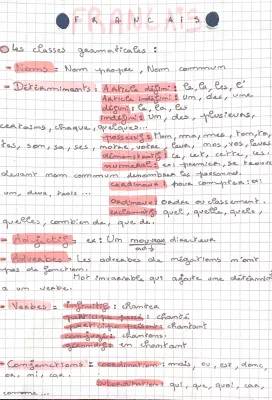 FRANCAIS
Les classes grammaticales :
- Noms = Nom propre, Nom commun
- Déterminants : Article défini : le, la, les, l'
Article indéfini : un, des, une
défini : le, la, les
indéfini : Un, des, plusieurs,
certains, chaque, quelques...
possessif : Mon, ma, mes, ton, ta,
tes, son, sa, ses, notre, votre, leur, nos, vos, leurs
démonstratif : Ce, cet, cette, ces.
numéral : ex : premier, se trouve
devant nom commun dénombrer les personnes.
cardinaux : pour compter : ex :
un, deux, trois ...
ordinaux : ordre ou classement.
exclamatif : quel, quelle, quels,
quelles, combien de, que de.
- Adjectif : ex : Un mauvais directeur
adj
- Adverbes : Les adverbes de négations n'ont
pas de fonction.
Mot invariable qui ajoute une détermination
à un verbe.
- Verbes = infinitif : chanter
participe passé : chanté
participe présent : chantant
conjugué : chantons.
gérondif : en chantant
- Conjonctions = coordination : mais, ou, est, donc,
or, ni, car.
subordination : qui, que, quoi, car,
comme ...